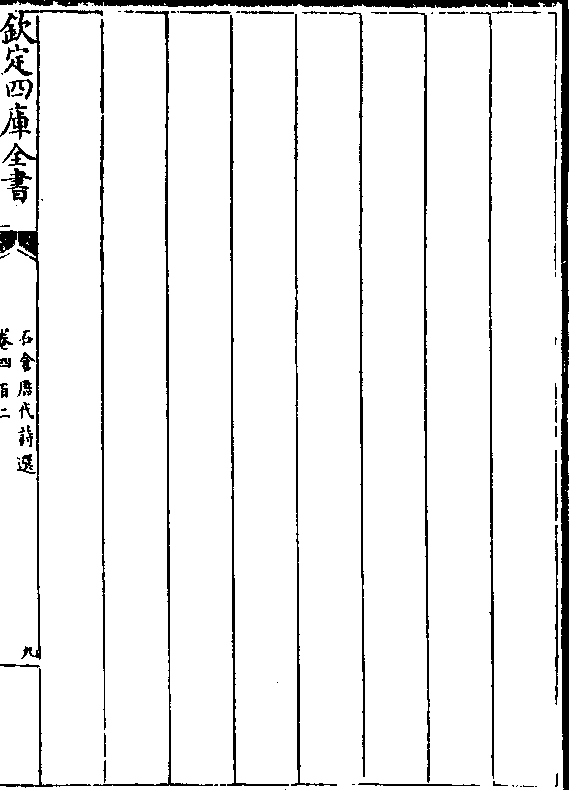 欽定四庫全書
石倉歷代詩選
卷四百二
九